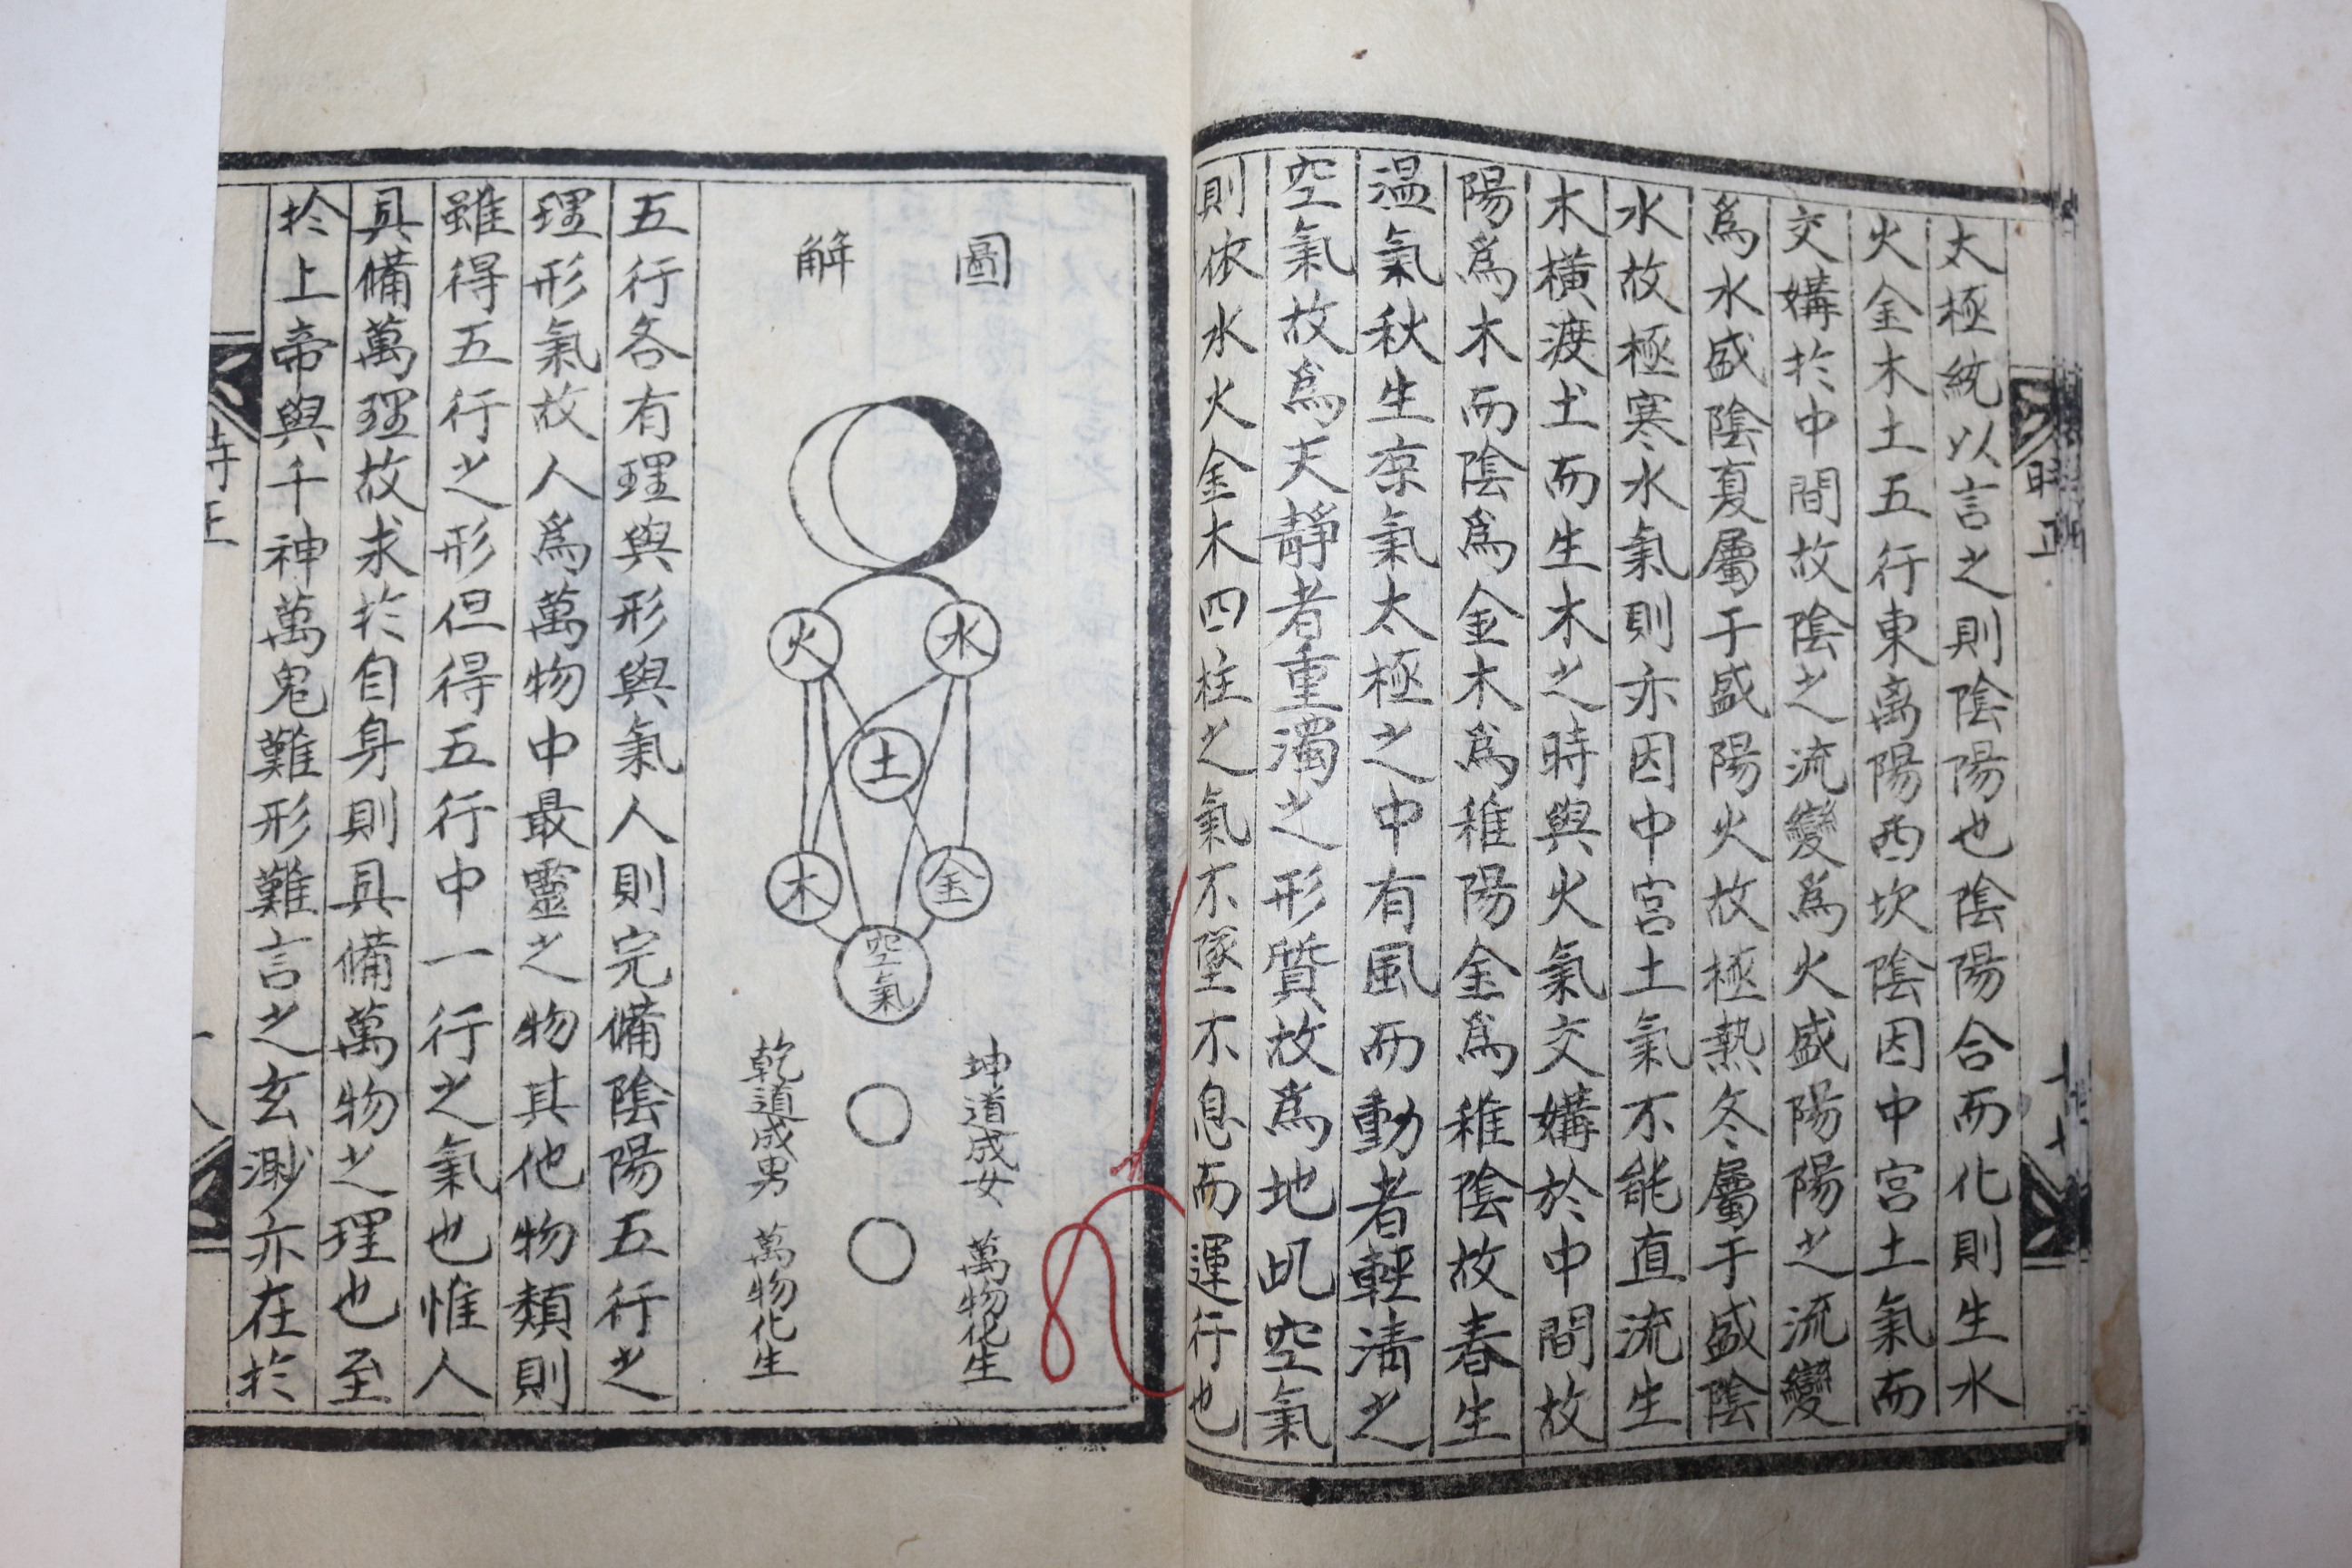 太極統以言之則陰陽也陰陽合而化則生水
火金木土五行東离陽西坎陰因中宮土氣而
交媾於中間故陰之流變爲火盛陽陽之流變
爲水盛陰夏屬于盛陽火故極熱冬屬于盛陰
水故極寒水氣則亦因中宮土氣不能直流生
木橫渡土而生木之時與火氣交媾於中間故
陽爲木而陰爲金木爲稚陽金爲稚陰故春生
溫氣秋生凉氣太極之中有風而動者輕淸之
空氣故爲天靜者重濁之形質故爲地此空氣
則依水火金木四柱之氣不墜不息而運行也
時正
圖解
水
火
土
金
木
空氣
坤道成女 萬物化生
乾道成男 萬物化生
五行各有理與形與氣人則完備陰陽五行之
理形氣故人爲萬物中最靈之物其他物類則
雖得五行之形但得五行中一行之氣也惟人
具備萬理故求於自身則具備萬物之理也至
於上帝與千神萬鬼難形難言之玄渺亦在於
時正